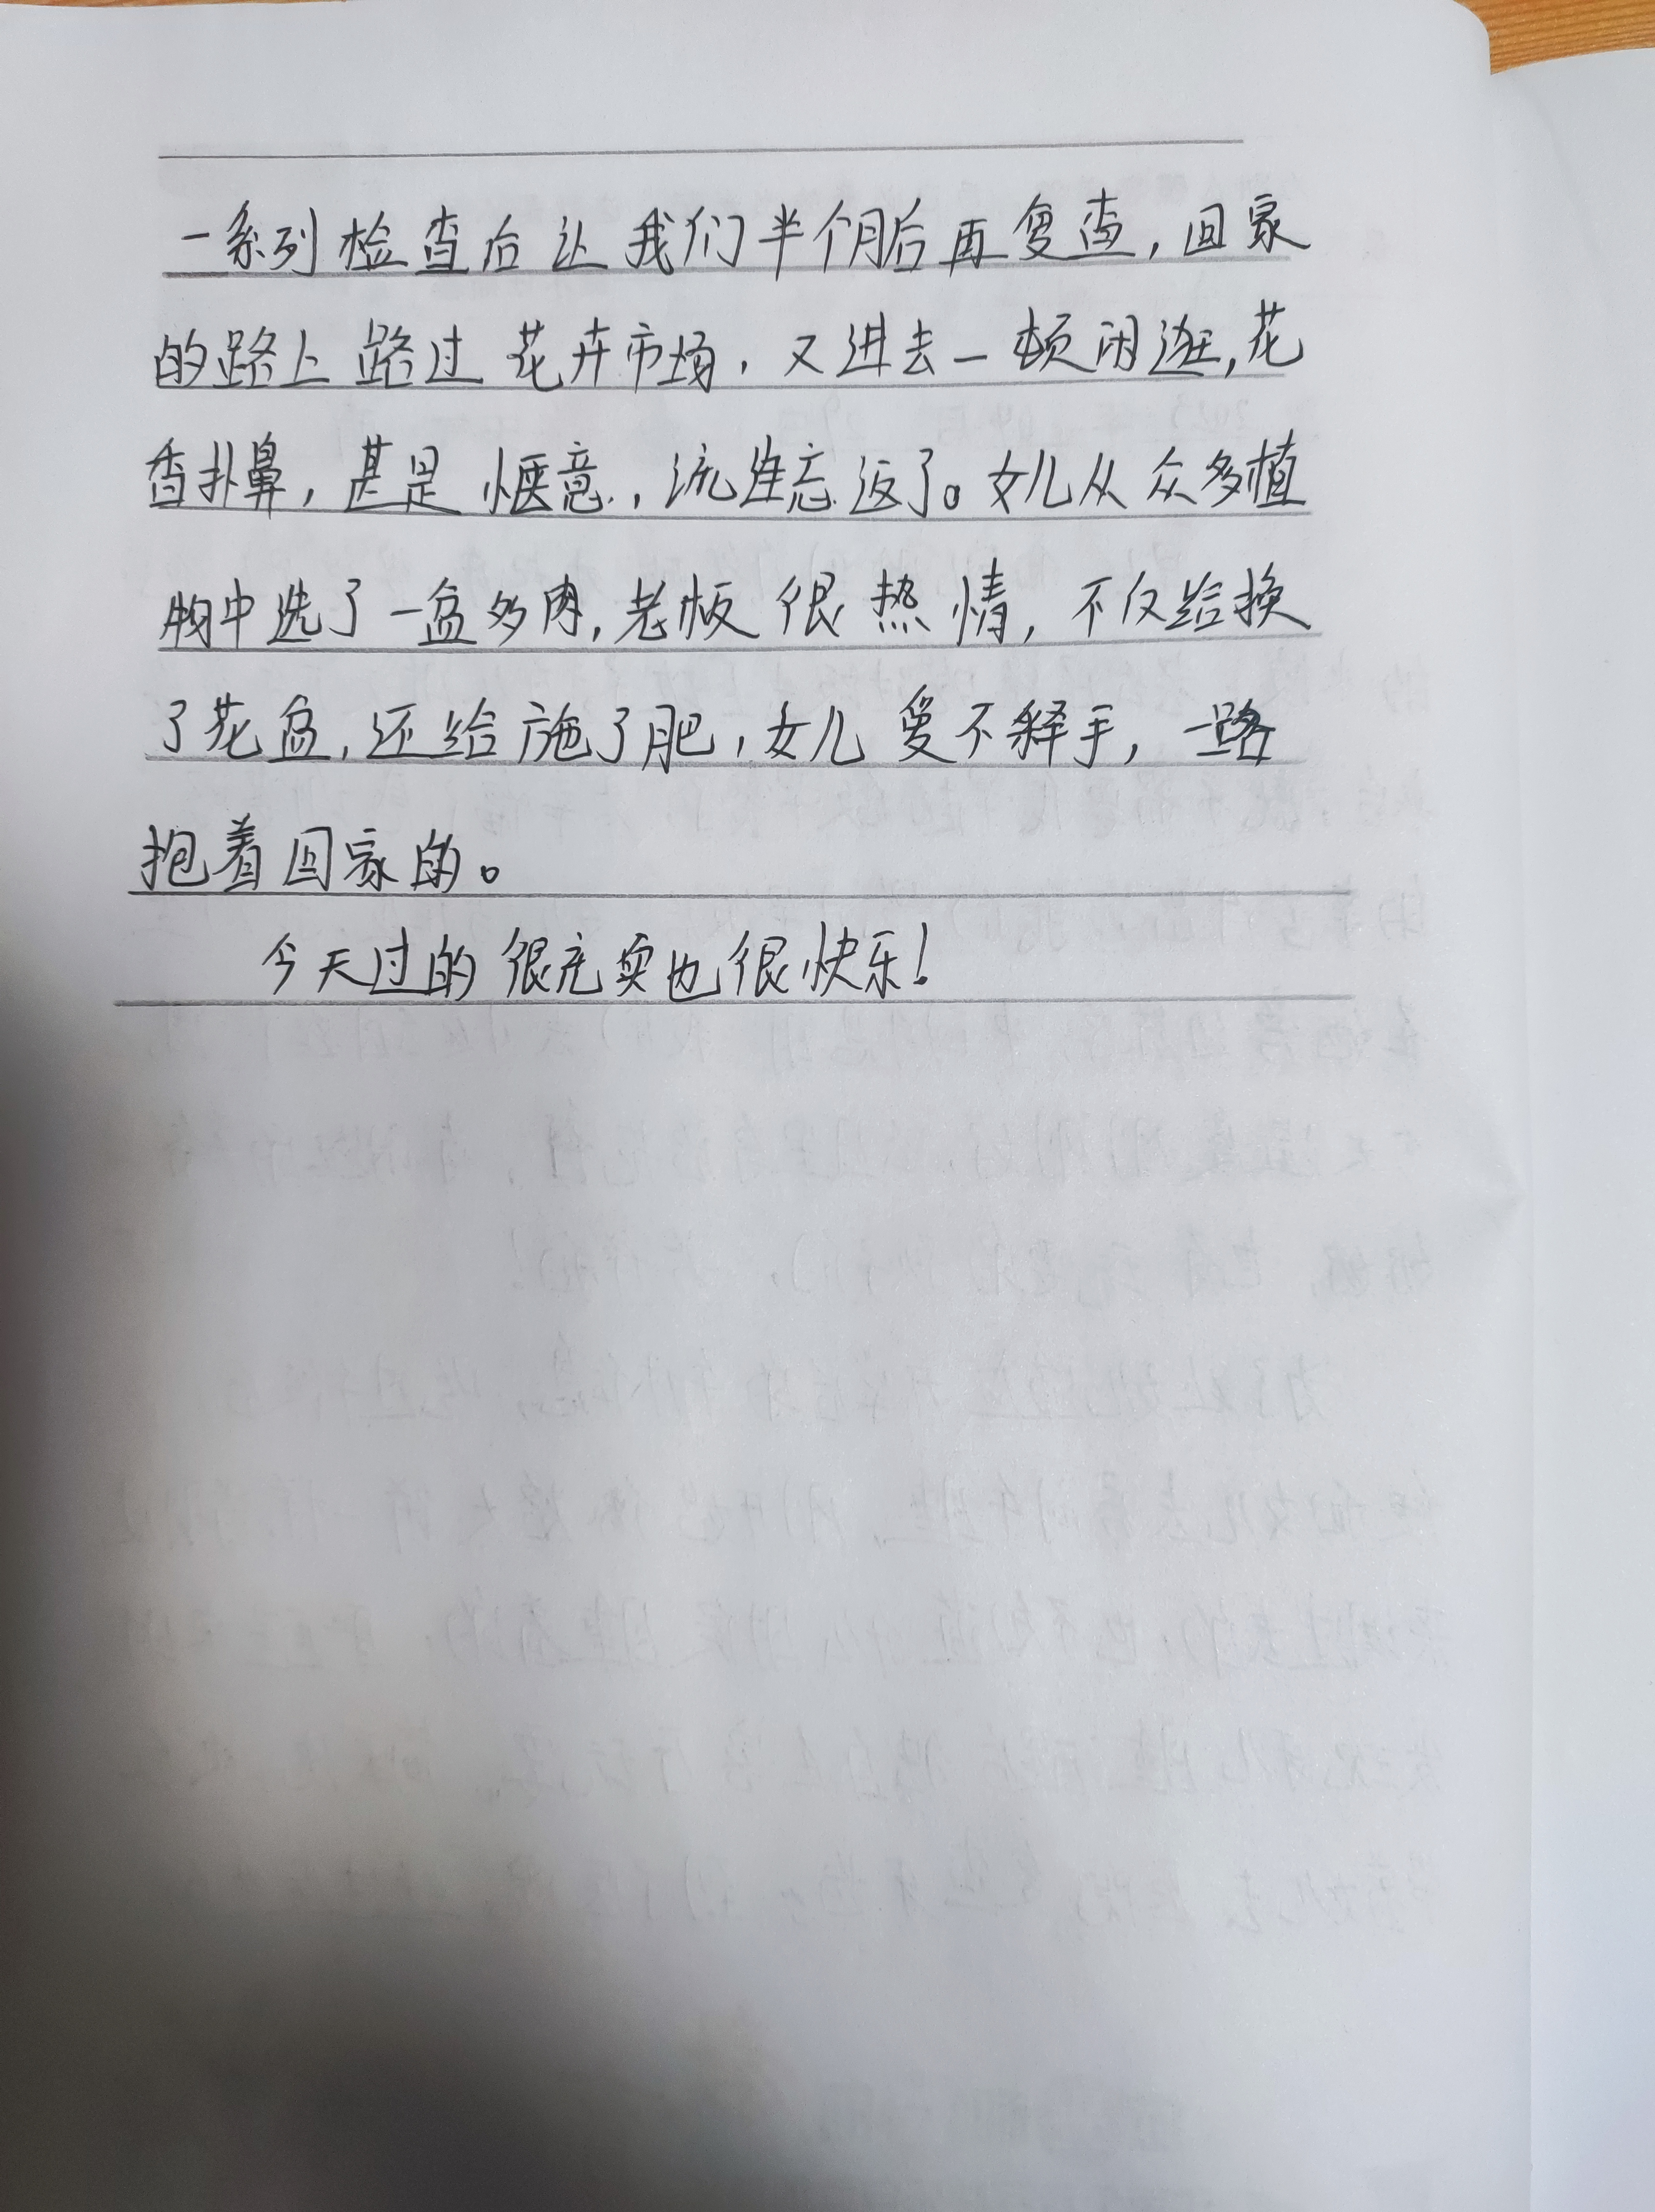 一系列检查后让我们半个月后再复查，回家
的路上路过花卉市场，又进去一顿闲逛，花
香扑鼻，甚是惬意，流连忘返了。女儿从众多植
物中选了一盆多肉，老板很热情，不仅给换
了花盆，还给施了肥，女儿爱不释手，一路
抱着回家的。
今天过的很充实也很快乐！